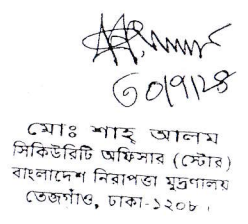 ৩০/৭/২৪
মোঃ শাহ্ আলম
সিকিউরিটি অফিসার (স্টোর)
বাংলাদেশ নিরাপত্তা মুদ্রণালয়
তেজগাঁও, ঢাকা-১২০৮।